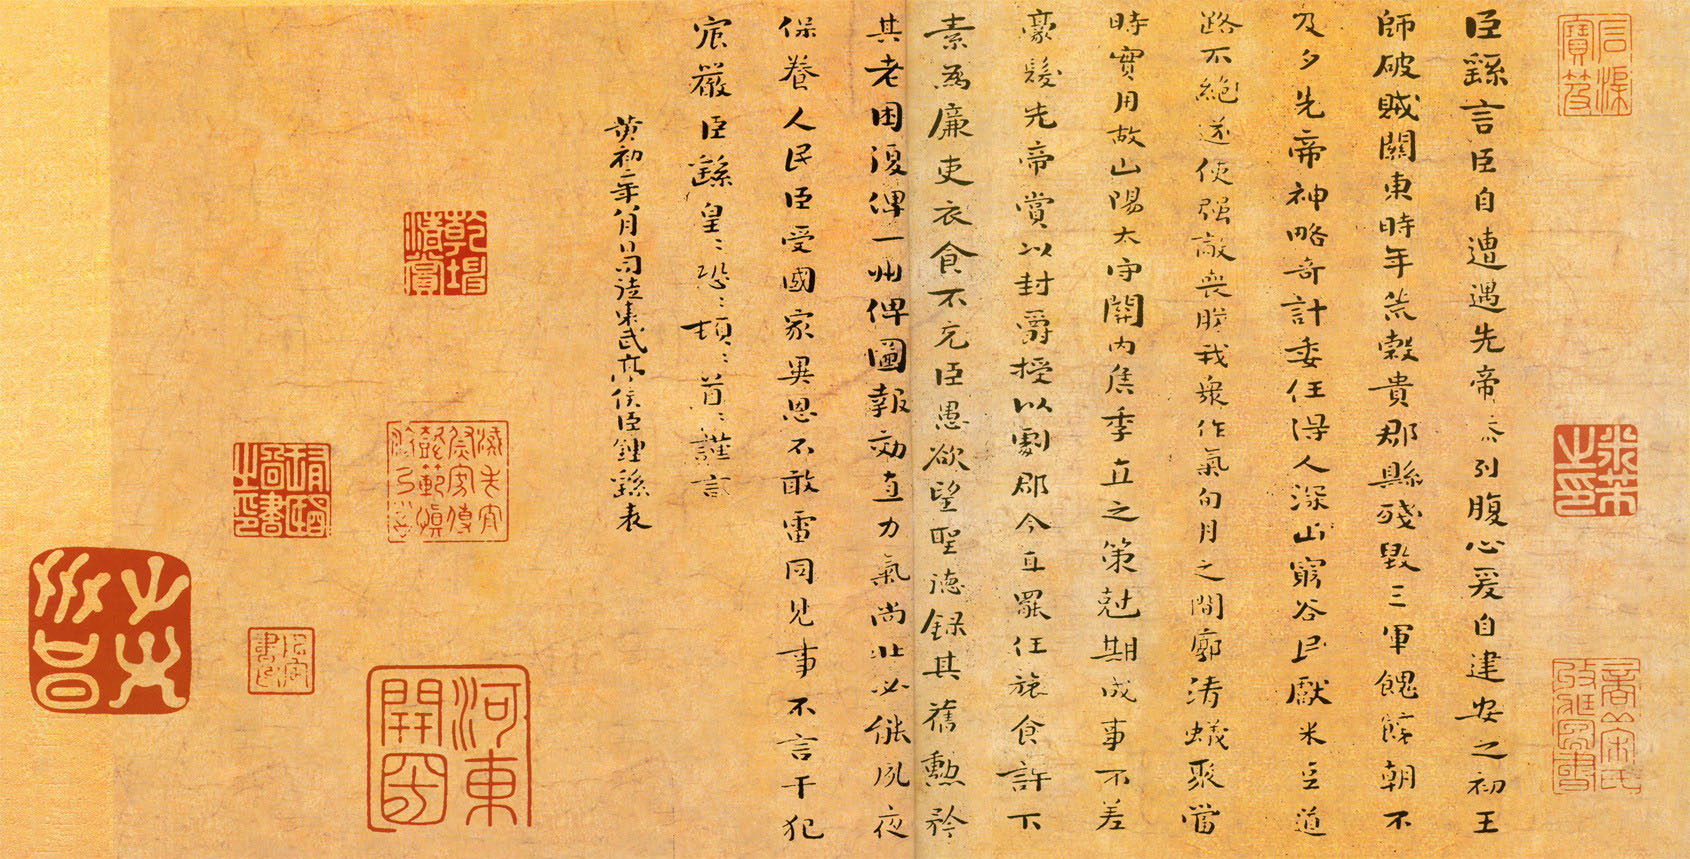 臣繇言臣自遭遇先帝忝列腹心爰自建安之初王
師破賊關東時年荒穀貴郡縣殘毀三軍餽饟朝不
及夕先帝神略奇計委任得人深山窮谷民獻米豆道
路不絶遂使强敵喪膽我衆作氣旬月之間廓清蟻聚當
時實用故山陽太守關內侯季直之策尅期成事不差
豪髮先帝賞以封爵授以劇郡今直罷任旅食許下
素為廉吏衣食不充臣愚欲望聖德録其舊勲矜
其老困復俾一州俾圖報効直力氣尚壯必能夙夜
保養人民臣受國家異恩不敢雷同見事不言干犯
宸嚴臣繇皇〻恐〻頓〻首〻謹言
黄初二年八月日司徒東武亭侯臣鍾繇表
米芾之印
乾坤清賞
河東開國